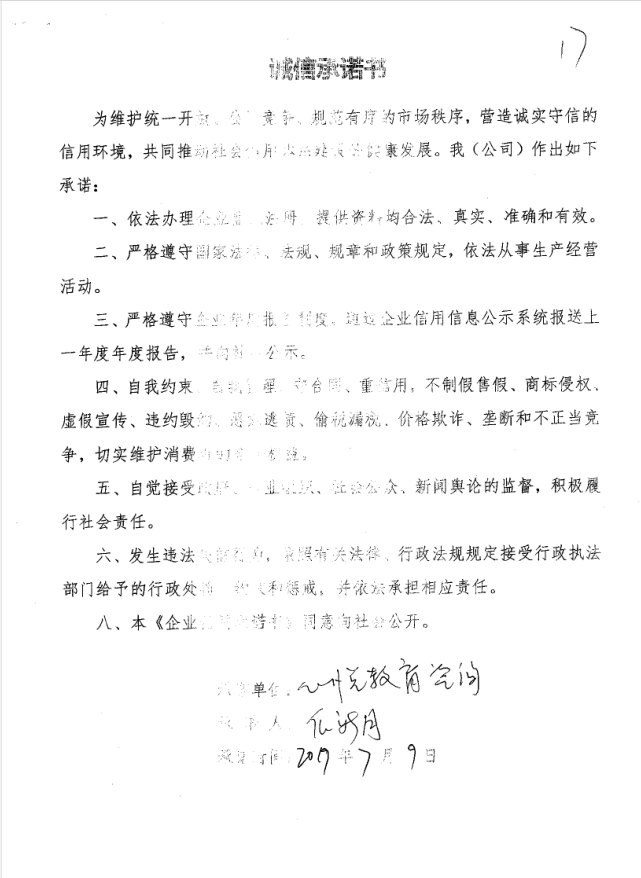 17
诚信承诺书
为维护统一开放、公平竞争、规范有序的市场秩序，营造诚实守信的
信用环境，共同推动社会信用体系建设健康发展。我（公司）作出如下
承诺：
一、依法办理企业登记注册，提供资料均合法、真实、准确和有效。
二、严格遵守国家法律、法规、规章和政策规定，依法从事生产经营
活动。
三、严格遵守企业年度报告制度，通过企业信用信息公示系统报送上
一年度年度报告，并向社会公示。
四、自我约束、自我管理，守合同、重信用，不制假售假、商标侵权、
虚假宣传、违约毁约、逃债、偷税漏税，价格欺诈、垄断和不正当竞
争，切实维护消费者的
五、自觉接受政府、行业组织、社会公众、新闻舆论的监督，积极履
行社会责任。
六、发生违法失信行为，依照有关法律、行政法规规定接受行政执法
部门给予的行政处罚、约束和惩戒，并依法承担相应责任。
八、本《企业信用承诺书》同意向社会公开。
承诺单位：教育咨询
承诺人：
承诺时间：2017年7月9日